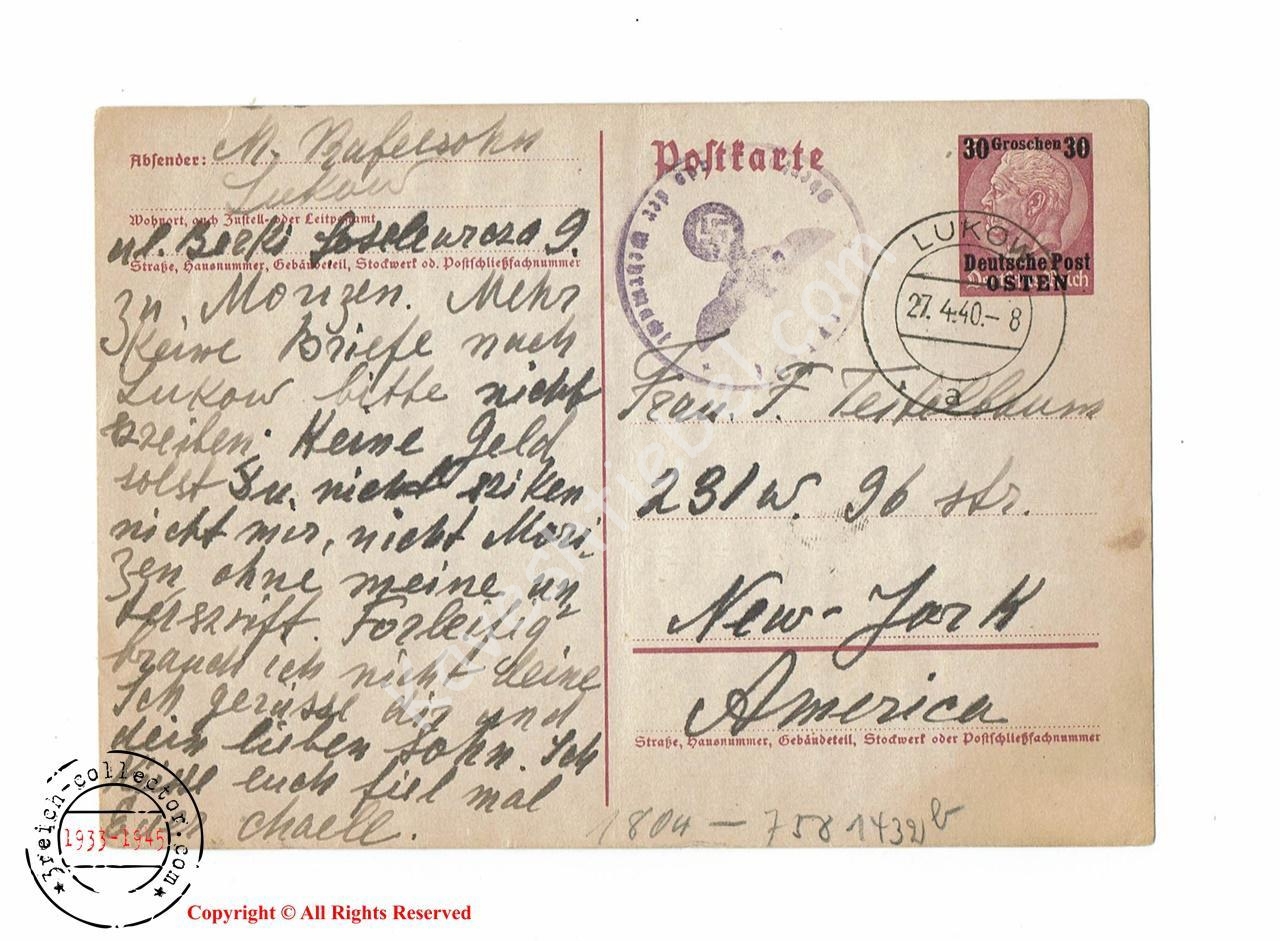 Absender: M. Rafelsohn
Lukow
Wohnort, auch Zustell- oder Leitpostamt
ul. Berki 9.
Straße, Hausnummer, Gebäudeteil, Stockwerk od. Postschließfachnummer
zu Morizen. Mehr
keine Briefe nach
Lukow bitte nicht
szreiben. Keine Geld
solst Du nicht sziken
nicht mir, nicht Mori-
zen, ohne meine un-
terszrift. Forleifig
brauch ich nicht deine
Ich gerüsse dir und
dein lieben sohn. Ich
küsse euch fiel mal
chaell.
Postkarte
der Wehrmacht
30 Groschen 30
Deutsche Post
OSTEN
Deutsches Reich
LUKOW
27. 4.40.- 8
a
Frau. F. Teitelbaum
231 w. 96 str.
New-York
America
Straße, Hausnummer, Gebäudeteil, Stockwerk oder Postschließfachnummer
1804 - 758 1432 b
3reich-collector.com
1933-1945
Copyright © All Rights Reserved